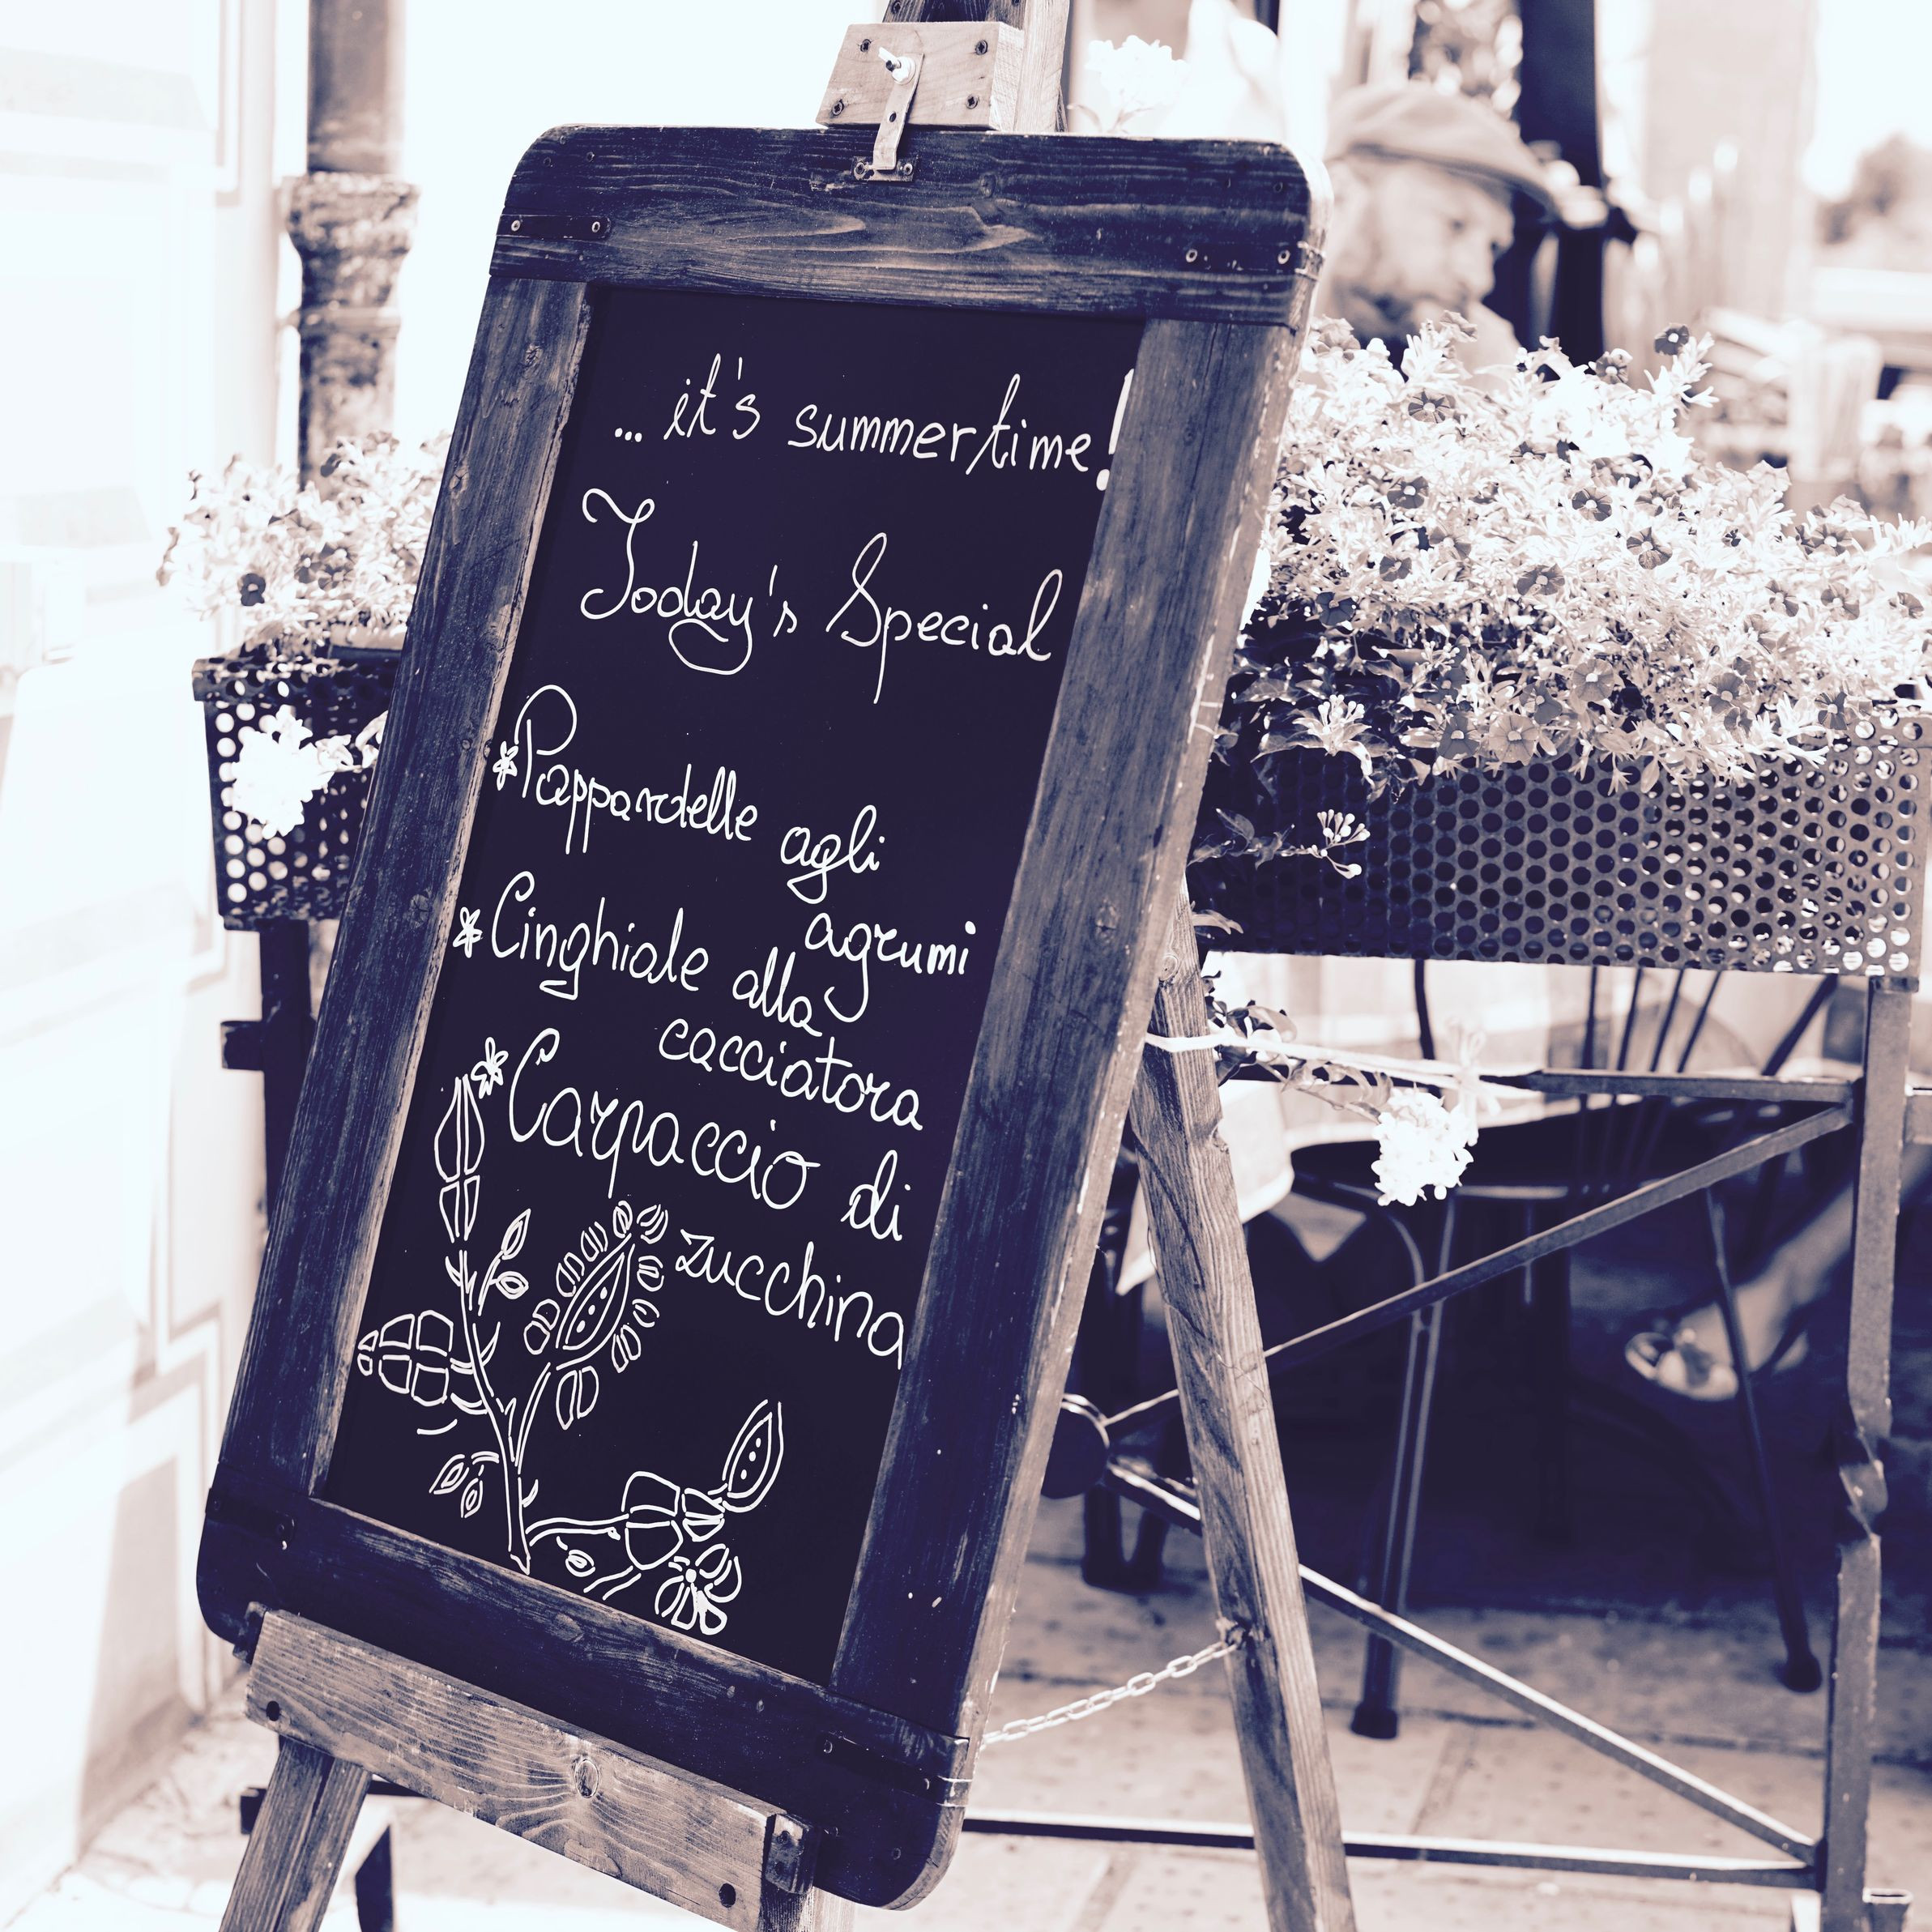 ... it's summertime!
Today's Special
*Pappardelle agli
agrumi
*Cinghiale alla
cacciatora
*Carpaccio di
zucchina